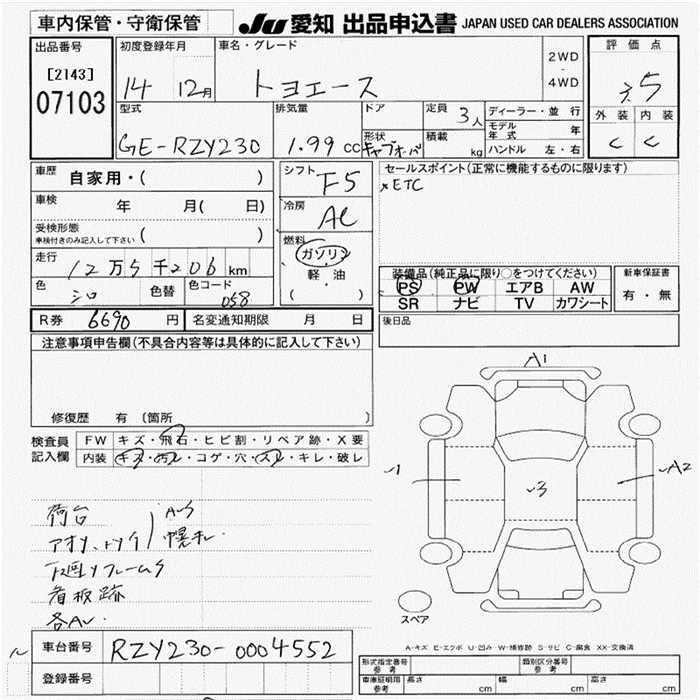 車内保管・守衛保管
JU 愛知 出品申込書 JAPAN USED CAR DEALERS ASSOCIATION
出品番号 [2143] 07103
初度登録年月 14 12月
車名・グレード トヨエース
2WD・4WD
評価点 3.5
外装 C 内装 C
型式 GE-RZY230
排気量 1.99 cc
ドア
形状
定員 3人
積載 kg
ディーラー・並行
モデル年式 年
ハンドル 左・右
車歴 自家用・( )
車検 年 月( 日)
受検形態 ( )
車検付きのみ記入して下さい
走行 12万5千206km
色 シロ 色替 色コード 058
シフト F5
冷房 AC
燃料 ガソリン
軽・油
( )
セールスポイント(正常に機能するものに限ります)
×ETC
装備品(純正品に限り○をつけてください)
PS PW エアB AW
SR ナビ TV カワシート
新車保証書 有・無
R券 6690 円 名変通知期限 月 日
後日品
注意事項申告欄(不具合内容等は具体的に記入して下さい)
修復歴 有 〔箇所
検査員記入欄
FW キズ・飛石・ヒビ割・リペア跡・X要
内装 キズ・汚レ・コゲ・穴・スレ・キレ・破レ
荷台
A.S
看板跡
各AU.
A1
A2
スペア
A-キズ E-エクボ U-凹み W-補修跡 S-サビ C-腐食 XX-交換済
車台番号 RZY230-0004552
登録番号
形式指定番号 参考
類別区分番号 参考
車庫証明用 参考 長さ cm 幅 cm 高さ cm